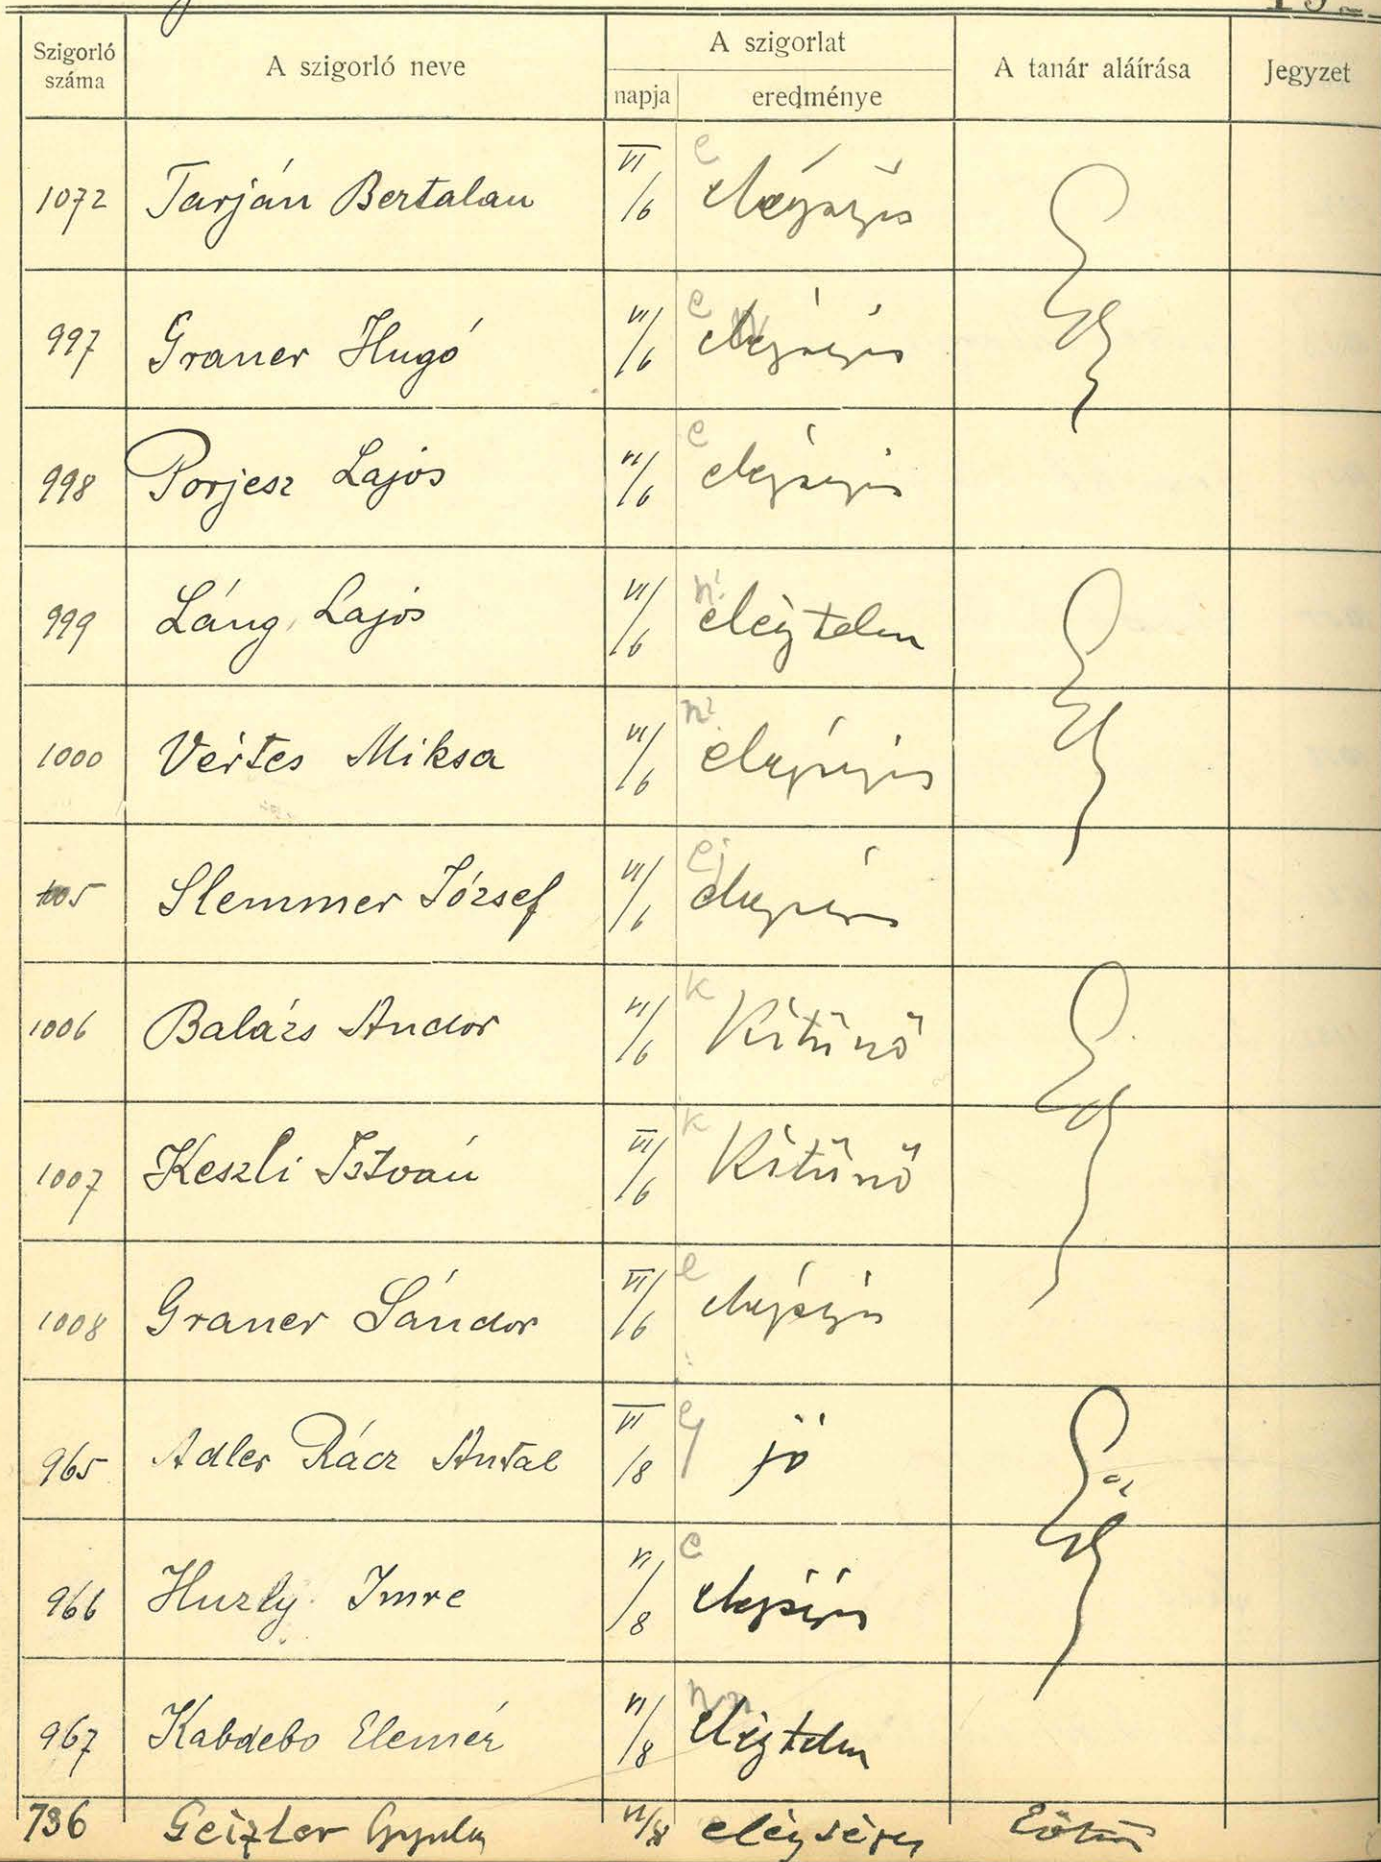 Szigorló száma A szigorló neve A szigorlat napja eredménye A tanár aláírása Jegyzet
1072 Tarján Bertalan VI/6 e elégséges
997 Graner Hugó VI/6 e elégséges
998 Porjesz Lajos VI/6 e elégséges
999 Láng Lajos VI/6 elégtelen
1000 Vértes Miksa VI/6 elégséges
Slemmer József VI/6 elégséges
1006 Balázs Andor VI/6 k Kitünő
1007 Keszli István VI/6 k Kitünő
1008 Graner Sándor VI/6 e elégséges
965 Adler Rácz Antal VI/8 jó
966 Huzly Imre VI/8 e elégséges
967 Kabdebo Elemér VI/8 elégtelen
736 Geizler Gyula VI/8 elégséges